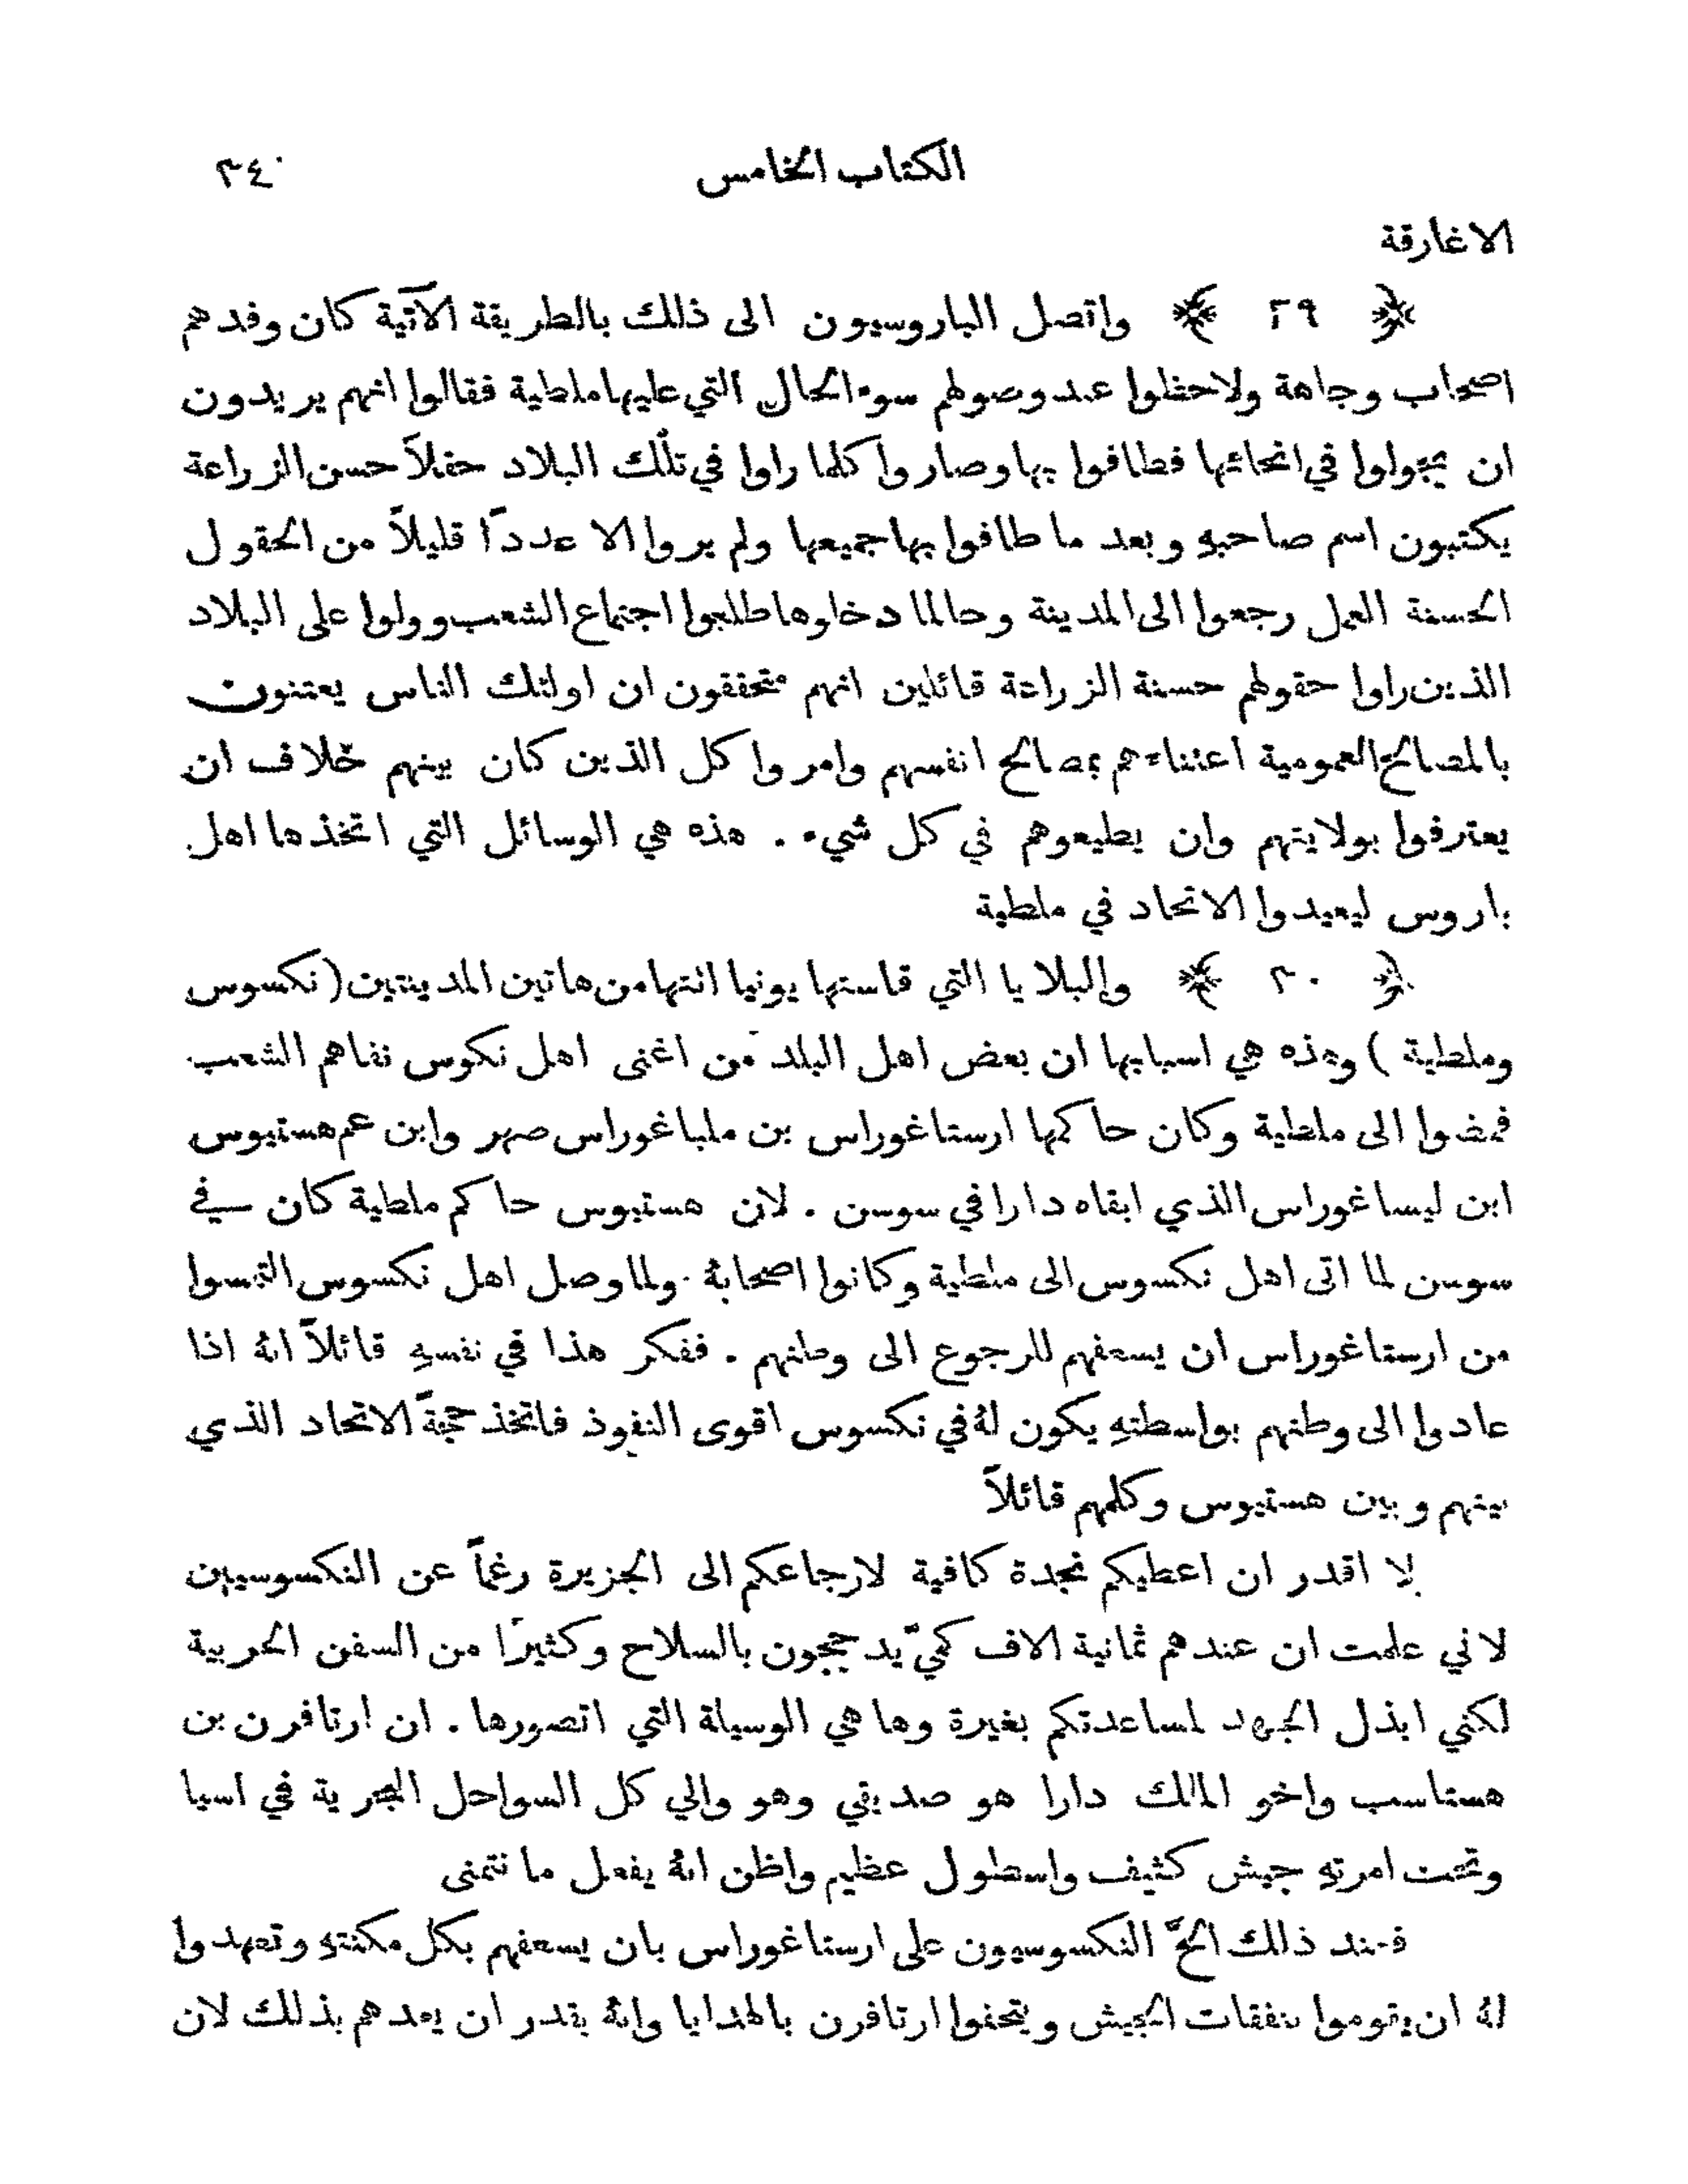 الكتاب الخامس ٣٤٠
الاغارقة
﴿ ٢٩ ﴾ واتصل الباروسيون الى ذلك بالطريقة الآتية كان وفدهم
اصحاب وجاهة ولاحظوا عند وصولهم سوء الحال التي عليها ملطية فقالوا انهم يريدون
ان يجولوا في انحائها فطافوا بها وصاروا كلما راوا في تلك البلاد حقلاً حسن الزراعة
يكتبون اسم صاحبهِ وبعد ما طافوا بها جميعها ولم يروا الا عدداً قليلاً من الحقول
الحسنة العمل رجعوا الى المدينة وحالما دخلوها طلبوا اجتماع الشعب وولوا على البلاد
الذين راوا حقولهم حسنة الزراعة قائلين انهم متحققون ان اولئك الناس يعتنون
بالمصالح العمومية اعتناءهم بمصالح انفسهم وامروا كل الذين كان بينهم خلاف ان
يعترفوا بولايتهم وان يطيعوهم في كل شيء . هذه هي الوسائل التي اتخذها اهل
باروس ليعيدوا الاتحاد في ملطية
﴿ ٣٠ ﴾ والبلايا التي قاستها يونيا اتتها من هاتين المدينتين (نكسوس
وملطية ) وهذه هي اسبابها ان بعض اهل البلد من اغنى اهل نكوس نفاهم الشعب
فمضوا الى ملطية وكان حاكمها ارستاغوراس بن ملباغوراس صهر وابن عم هستيوس
ابن ليساغوراس الذي ابقاه دارا في سوسن . لان هستيوس حاكم ملطية كان في
سوسن لما اتى اهل نكسوس الى ملطية وكانوا اصحابهُ . ولما وصل اهل نكسوس التمسوا
من ارستاغوراس ان يسعفهم للرجوع الى وطنهم . ففكر هذا في نفسهِ قائلاً انهُ اذا
عادوا الى وطنهم بواسطتهِ يكون لهُ في نكسوس اقوى النفوذ فاتخذ حجةً الاتحاد الذي
بينهم وبين هستيوس وكلمهم قائلاً
لا اقدر ان اعطيكم نجدة كافية لارجاعكم الى الجزيرة رغماً عن النكسوسيين
لاني علمت ان عندهم ثمانية الاف كميّ يدججون بالسلاح وكثيرًا من السفن الحربية
لكني ابذل الجهد لمساعدتكم بغيرة وها هي الوسيلة التي اتصورها . ان ارتافرن بن
هستاسب واخو الملك دارا هو صديقي وهو والي كل السواحل البحرية في اسيا
وتحت امرتهِ جيش كثيف واسطول عظيم واظن انهُ يفعل ما نتمنى
فعند ذلك الحَّ النكسوسيون على ارستاغوراس بان يسعفهم بكل مكنتهِ وتعهدوا
لهُ ان يقوموا بنفقات الجيش ويتحفوا ارتافرن بالهدايا وانهُ يقدر ان يعدهم بذلك لان